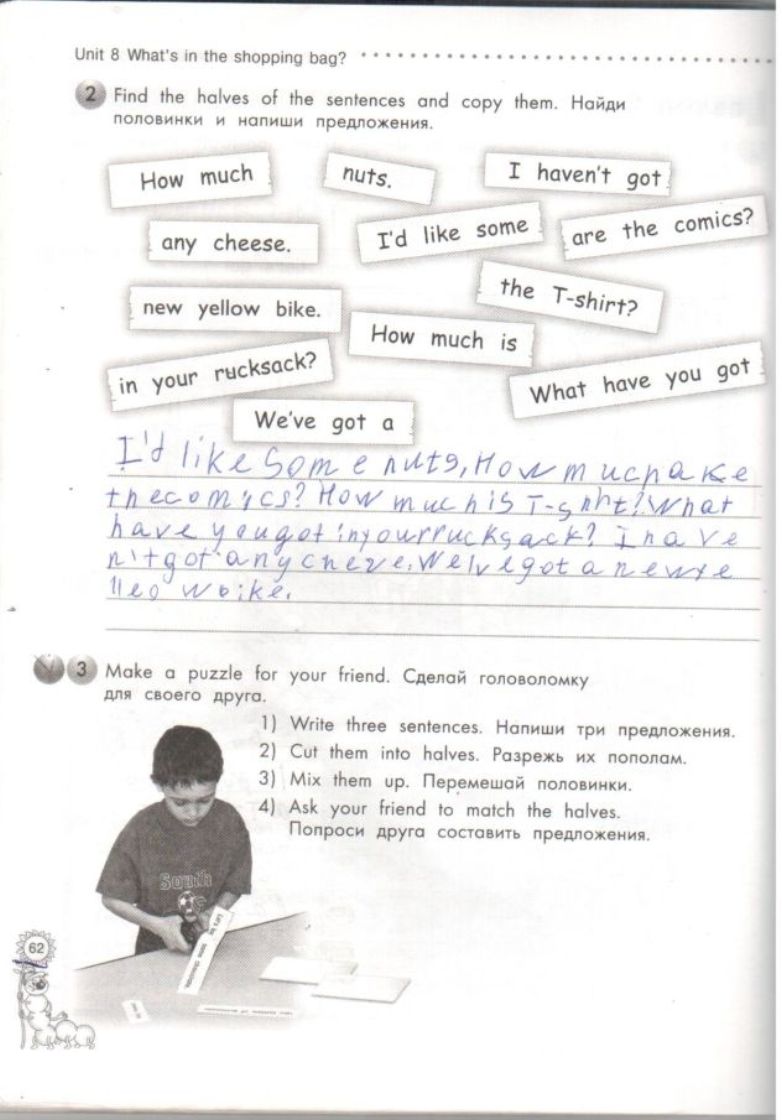 Unit 8 What's in the shopping bag?
2 Find the halves of the sentences and copy them. Найди
половинки и напиши предложения.
How much
nuts.
I haven't got
any cheese.
I'd like some
are the comics?
new yellow bike.
the T-shirt?
How much is
in your rucksack?
What have you got
We've got a
I'd like some nuts, How much ake
the comics? How much is T-shht? What
have you got in your rucksack? I have
n't got any cheeze. We've got a new ye
lleo w bike.
3 Make a puzzle for your friend. Сделай головоломку
для своего друга.
1) Write three sentences. Напиши три предложения.
2) Cut them into halves. Разрежь их пополам.
3) Mix them up. Перемешай половинки.
4) Ask your friend to match the halves.
Попроси друга составить предложения.
South
62